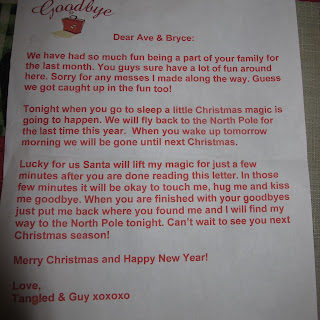 Goodbye
Dear Ave & Bryce:
We have had so much fun being a part of your family for
the last month. You guys sure have a lot of fun around
here. Sorry for any messes I made along the way. Guess
we got caught up in the fun too!
Tonight when you go to sleep a little Christmas magic is
going to happen. We will fly back to the North Pole for
the last time this year.  When you wake up tomorrow
morning we will be gone until next Christmas.
Lucky for us Santa will lift my magic for just a few
minutes after you are done reading this letter. In those
few minutes it will be okay to touch me, hug me and kiss
me goodbye. When you are finished with your goodbyes
just put me back where you found me and I will find my
way to the North Pole tonight. Can't wait to see you next
Christmas season!
Merry Christmas and Happy New Year!
Love,
Tangled & Guy xoxoxo